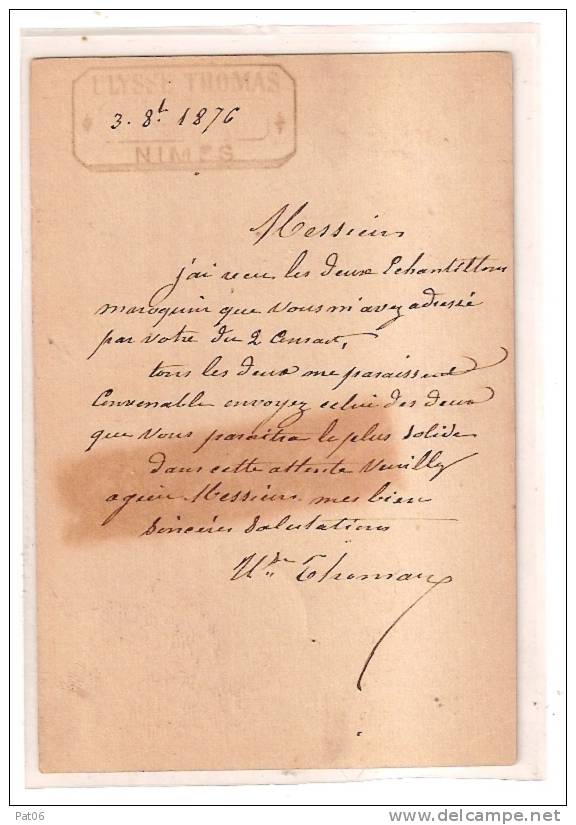 ULYSSE THOMAS
3. 8t. 1876
NIMES
Messieurs
j'ai recu les deux Echantillons
maroquin que vous m'avez adressé
par votre du 2 courant,
tous les deux me paraissent
convenable envoyez celui des deux
que vous paraitra le plus solide
dans cette attente veuillez
agréer Messieurs mes bien
sincères salutations
Thomas
Pat06
www.delcampe.net